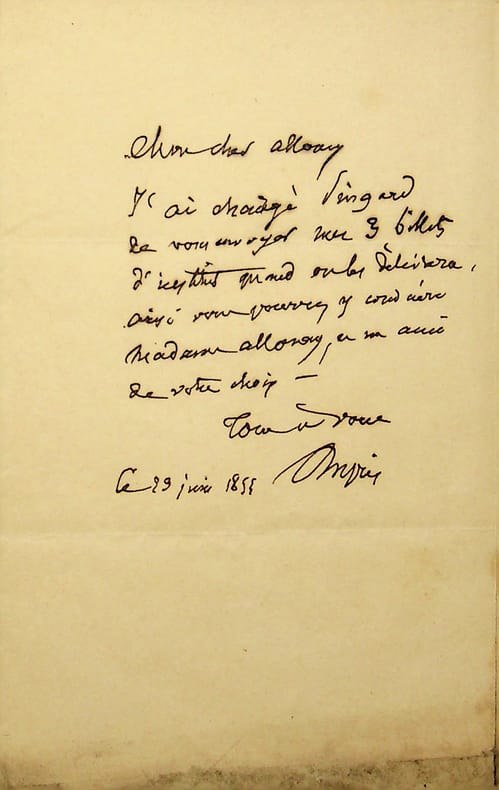 Mon cher alloury
J'ai chargé Pingard
de vous envoyer mes 3 billets
d'institut quand on les délivrera,
ainsi vous pourrez y conduire
Madame alloury, et un ami
de votre choix —
Tout à vous
Ce 29 juin 1855